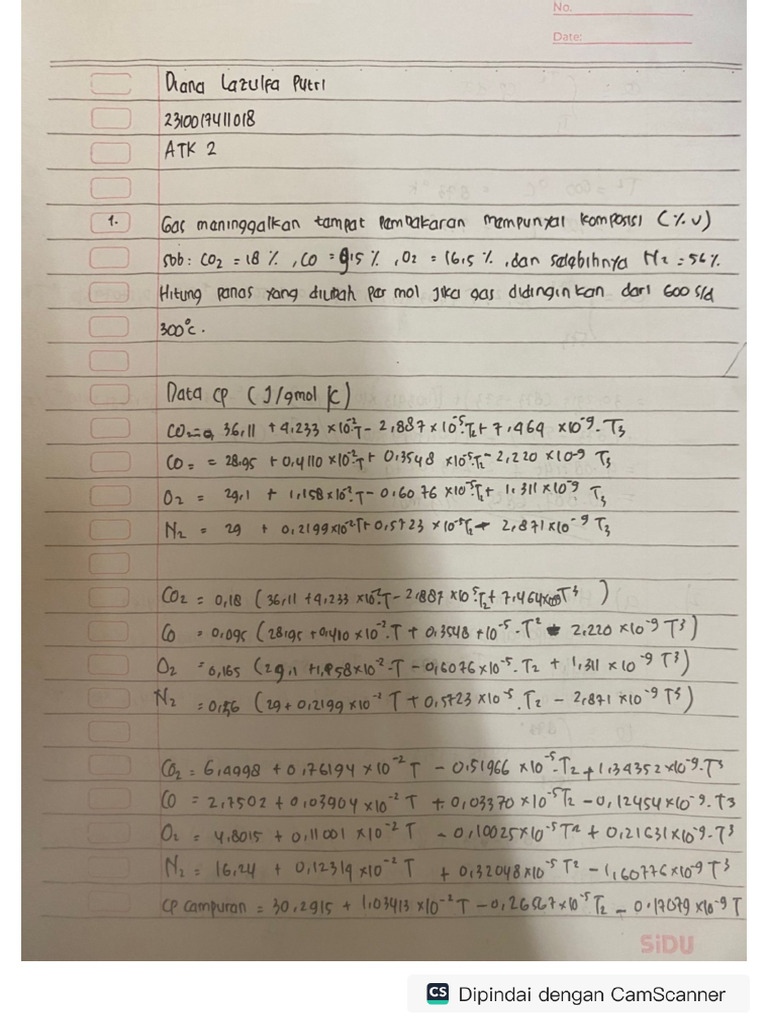 No.
Date:
Diana Lazulfa Putri
2310017411018
ATK 2
1. Gas meninggalkan tempat pembakaran mempunyai komposisi (%v)
sbb: CO2 = 18 %, CO = 9,5 %, O2 = 16,5 %, dan selebihnya N2 = 56%.
Hitung panas yang diubah per mol jika gas didinginkan dari 600 s/d
300°C.
Data cp (J/gmol K)
CO2 = 36,11 + 4,233 x10-2.T - 2,887 x 10-5.T2 + 7,464 x10-9.T3
CO = = 28,95 + 0,4110 x10-2.T + 0,3548 x10-5.T2 - 2,220 x10-9 T3
O2 = 29,1 + 1,158x10-2.T - 0,6076 x10-5.T2 + 1,311 x10-9 T3
N2 = 29 + 0,2199x10-2T + 0,5723 x 10-5T2 - 2,871x10-9 T3
CO2 = 0,18 (36,11 + 4,233 x10-2.T - 2,887 x10-5.T2 + 7,464x10-9T3)
CO = 0,095 (28,95 + 0,410 x10-2.T + 0,3548 x10-5.T2 - 2,220 x10-9 T3)
O2 = 0,165 (29,1 + 1,158x10-2.T - 0,6076x10-5.T2 + 1,311 x 10-9 T3)
N2 = 0,56 (29 + 0,2199 x10-2 T + 0,5723 x10-5.T2 - 2,871 x10-9 T3)
CO2 = 6,4998 + 0,76194 x 10-2 T - 0,51966 x10-5.T2 + 1,34352 x10-9.T3
CO = 2,7502 + 0,03904 x10-2 T + 0,03370 x10-5T2 - 0,12454x10-9.T3
O2 = 4,8015 + 0,11001 x10-2 T - 0,10025x10-5T2 + 0,21631x10-9.T3
N2 = 16,24 + 0,12314 x10-2 T + 0,32048x10-5 T2 - 1,60776 x10-9 T3
Cp campuran = 30,2915 + 1,03413 x10-2 T - 0,26567x10-5 T2 - 0,17079 x10-9 T
SiDU
CS Dipindai dengan CamScanner